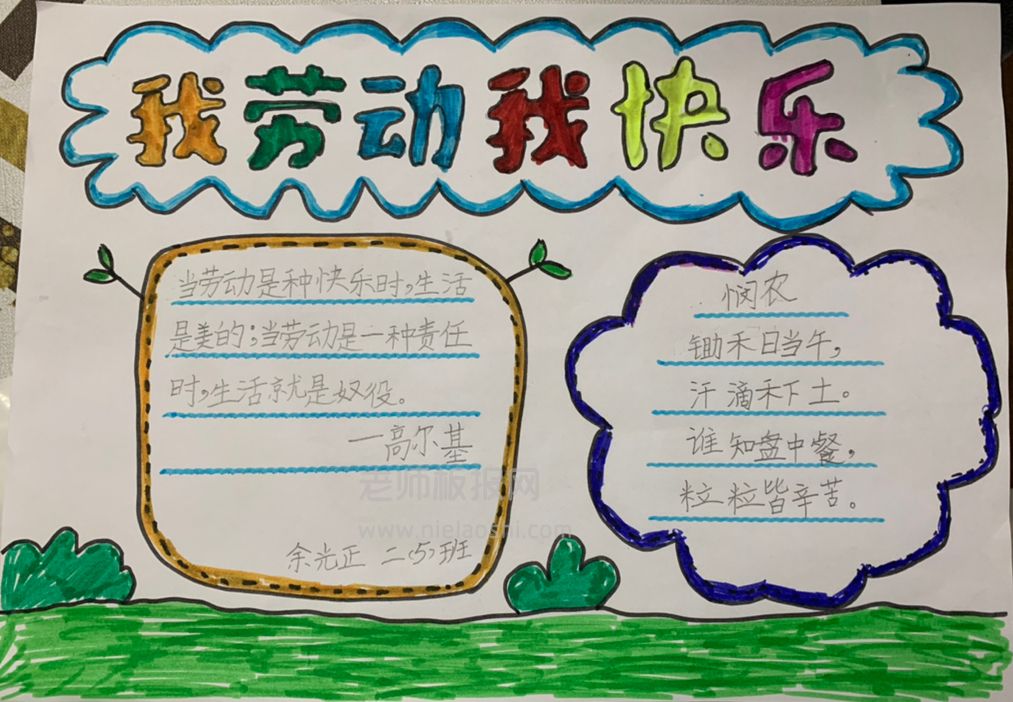 我劳动我快乐
当劳动是种快乐时,生活
是美的;当劳动是一种责任
时,生活就是奴役。
一高尔基
余光正 二(5)班
悯农
锄禾日当午,
汗滴禾下土。
谁知盘中餐,
粒粒皆辛苦。
老师板报网
www.nielaoshi.com